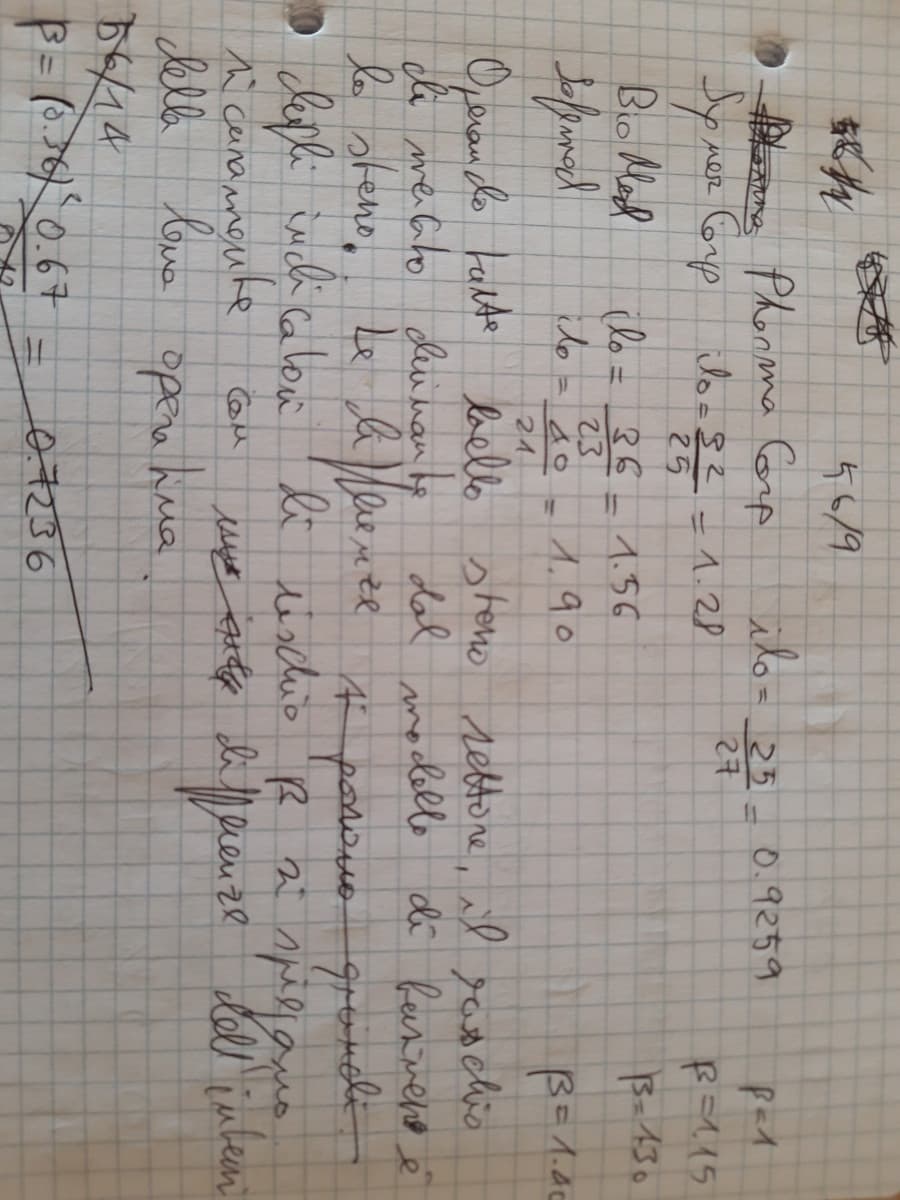 56/9
Pharma Corp ilo = 25/27 = 0.9259 β=1
Syner Corp ilo = 32/25 = 1.28 β=1.15
BioMed ilo = 36/23 = 1.56 β=1.30
Sofmed ilo = 40/21 = 1.90 β=1.40
Operando tutte nello stesso settore, il rischio
di mercato derivante dal modello di business è
lo stesso. Le differenze si possono quindi
degli indicatori di rischio β si spiegano
sicuramente con differenze dell'intensi
della leva operativa.
56/14
β = (0.36) 0.67 = 0.7236